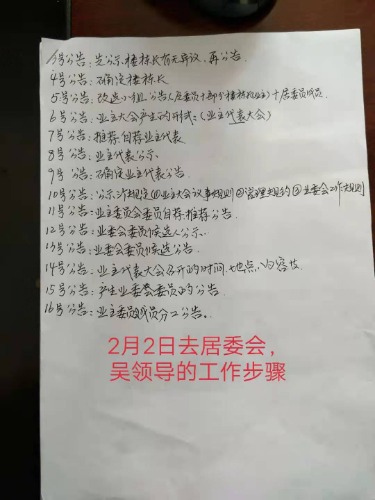 3号公告：先公示楼栋长有无异议，再公告.
4号公告：确定楼栋长
5号公告：改选小组公告(居委员+部分楼栋长业主)+居委员成员.
6号公告：业主大会产生的形式：(业主代表大会)
7号公告：推荐自荐业主代表.
8号公告：业主代表公示.
9号公告：确定业主代表公告.
10号公告：公示 ①业主大会议事规则 ②管理规约 ③业委会工作规则
11号公告：业主委员会委员自荐.推荐公告.
12号公告：业委会委员候选人公示.
13号公告：业委会委员候选公告.
14号公告：业主代表大会召开的时间.地点.内容等
15号公告：产生业委会委员的公告.
16号公告：业主委员成员分工公告.
2月2日去居委会，
吴领导的工作步骤